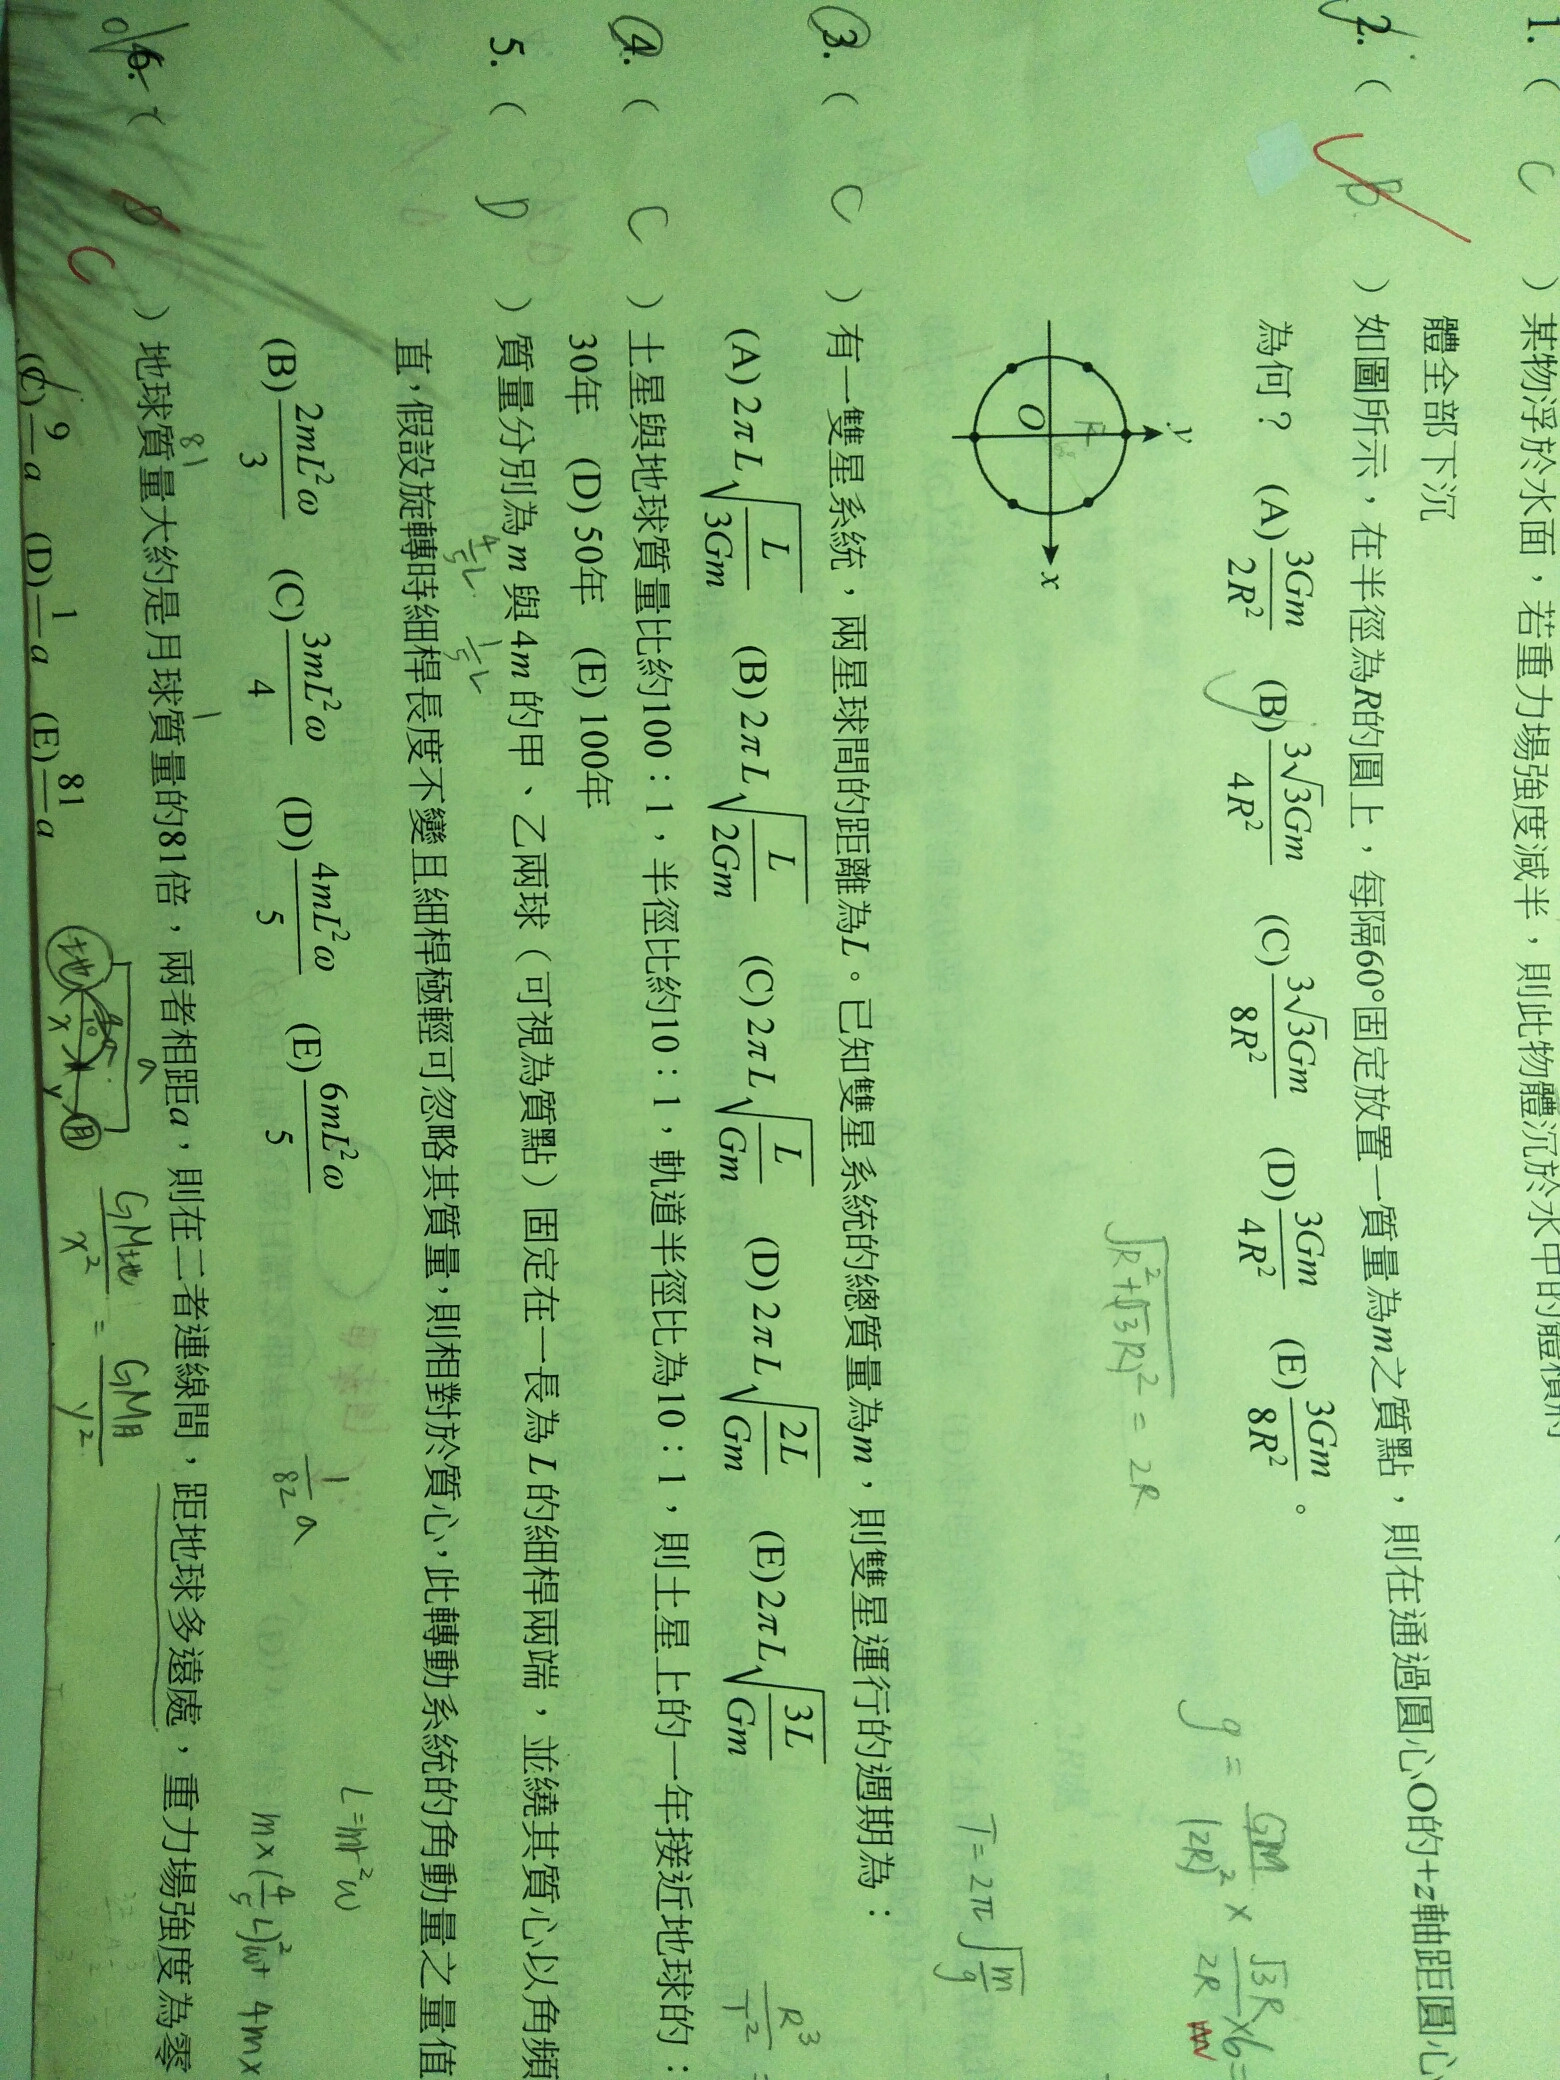 1. ( C ) 某物浮於水面，若重力場強度減半，則此物體沉於水中的體積
體全部下沉
2. ( B ) 如圖所示，在半徑為R的圓上，每隔60°固定放置一質量為m之質點，則在通過圓心O的+z軸距圓心
為何？ (A) 3Gm/2R² (B) 3√3Gm/4R² (C) 3√3Gm/8R² (D) 3Gm/4R² (E) 3Gm/8R² 。
√R²+(√3R)² = 2R
g = GM/(2R)² × √3R/2R × 6 =
y
O
x
3. ( C ) 有一雙星系統，兩星球間的距離為L。已知雙星系統的總質量為m，則雙星運行的週期為：
T = 2π√m/g
(A) 2πL√L/3Gm (B) 2πL√L/2Gm (C) 2πL√L/Gm (D) 2πL√2L/Gm (E) 2πL√3L/Gm
R³/T² =
4. ( C ) 土星與地球質量比約100：1，半徑比約10：1，軌道半徑比為10：1，則土星上的一年接近地球的：
30年 (D) 50年 (E) 100年
5. ( D ) 質量分別為m與4m的甲、乙兩球（可視為質點）固定在一長為L的細桿兩端，並繞其質心以角頻
4/5 L 1/5 L
直，假設旋轉時細桿長度不變且細桿極輕可忽略其質量，則相對於質心，此轉動系統的角動量之量值
L = mr²ω
(B) 2mL²ω/3 (C) 3mL²ω/4 (D) 4mL²ω/5 (E) 6mL²ω/5
1/82 a
m×(4/5 L)²ω + 4m×
81 1
6. ( C ) 地球質量大約是月球質量的81倍，兩者相距a，則在二者連線間，距地球多遠處，重力場強度為零
a
(C) 9/ a (D) 1/ a (E) 81/ a
地 x y 月
GM地/x² = GM月/y²